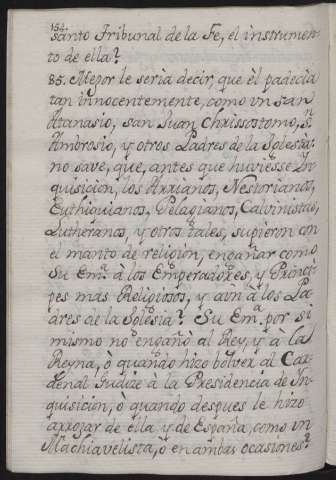 154.
santo Tribunal de la Fe, el instrumen-
to de ella?
85. Mejor le seria decir, que èl padecia
tan innocentemente, como vn San
Atanasio, san Juan Chrissostomo, Sn
Ambrosio, y otros Padres de la Iglesia:
no save, que, antes que huviesse In-
quisicion, los Arrianos, Nestorianos,
Euthiquianos, Pelagianos, Calvinistas,
Lutheranos, y otros tales, supieron con
el manto de religion, engañar como
Su Ema. à los Emperadores, y Princi-
pes mas Religiosos, y aun à los Pa-
dres de la Iglesia? Su Ema. por si
mismo no engañò al Rey, y à la
Reyna, ò quando hizo bolver al Car-
denal Judize à la Presidencia de In-
quisicion, ò quando despues le hizo
arrojar de ella y de España, como vn
Machiavelista, ò en ambas ocasiones?